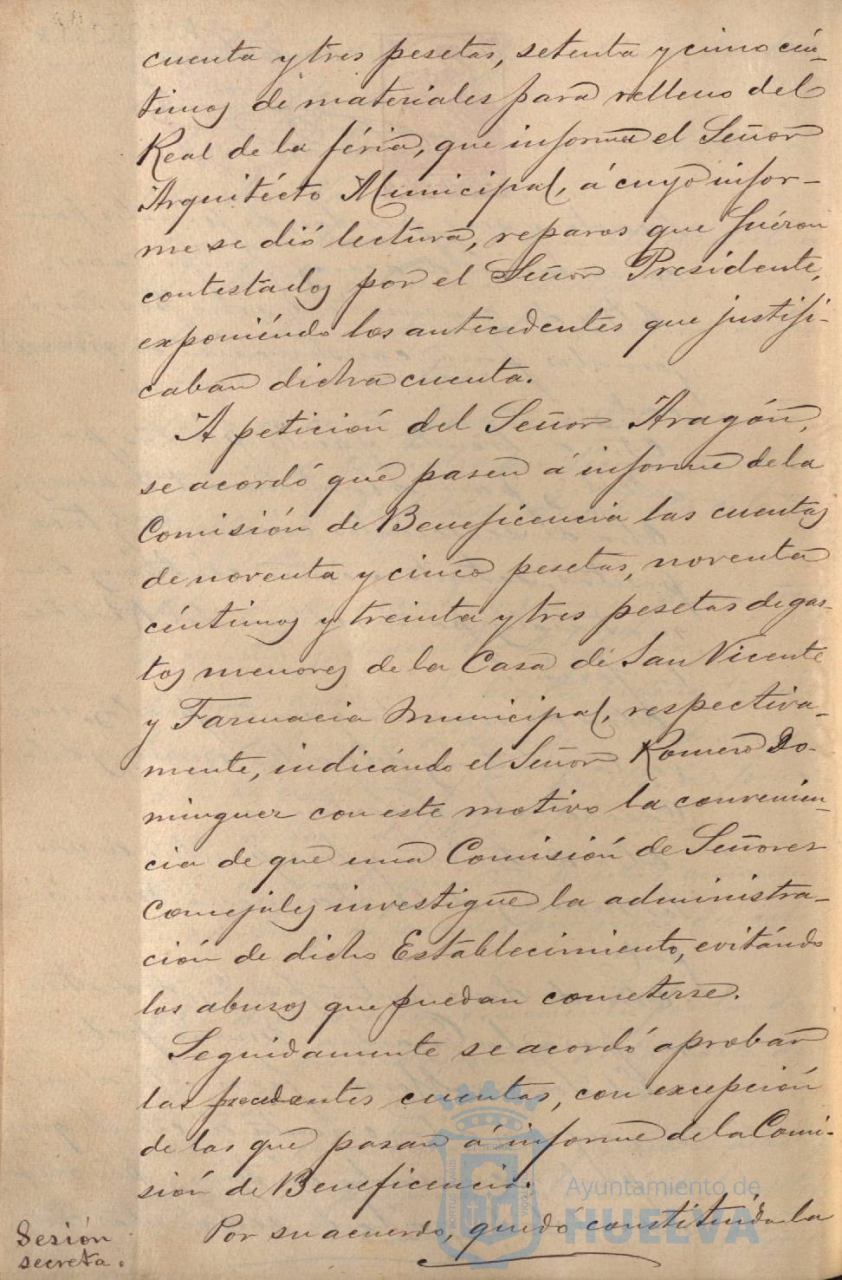 cuenta y tres pesetas, setenta y cinco cén-
timos de materiales para relleno del
Real de la féria, que informa el Señor
Arquitécto Municipal, á cuyo infor-
me se dió lectura, reparos que fuéron
contestados por el Señor Presidente,
exponiéndo los antecedentes que justifi-
caban dicha cuenta.
A petición del Señor Aragón,
se acordó que pasen á informe de la
Comisión de Beneficencia las cuentas
de noventa y cinco pesetas, noventa
céntimos y treinta y tres pesetas de gas-
tos menores de la Casa de San Vicente
y Farmacia Municipal, respectiva-
mente, indicándo el Señor Romero Do-
minguez con este motivo la convenien-
cia de que una Comisión de Señores
Concejales investigue la administra-
ción de dicho Establecimiento, evitándo
los abusos que puedan cometerse.
Seguidamente se acordó aprobar
las precedentes cuentas, con excepción
de las que pasan á informe de la Comi-
sión de Beneficencia.
Sesión
secreta.
Por su acuerdo, quedó constituida la
Ayuntamiento de
HUELVA